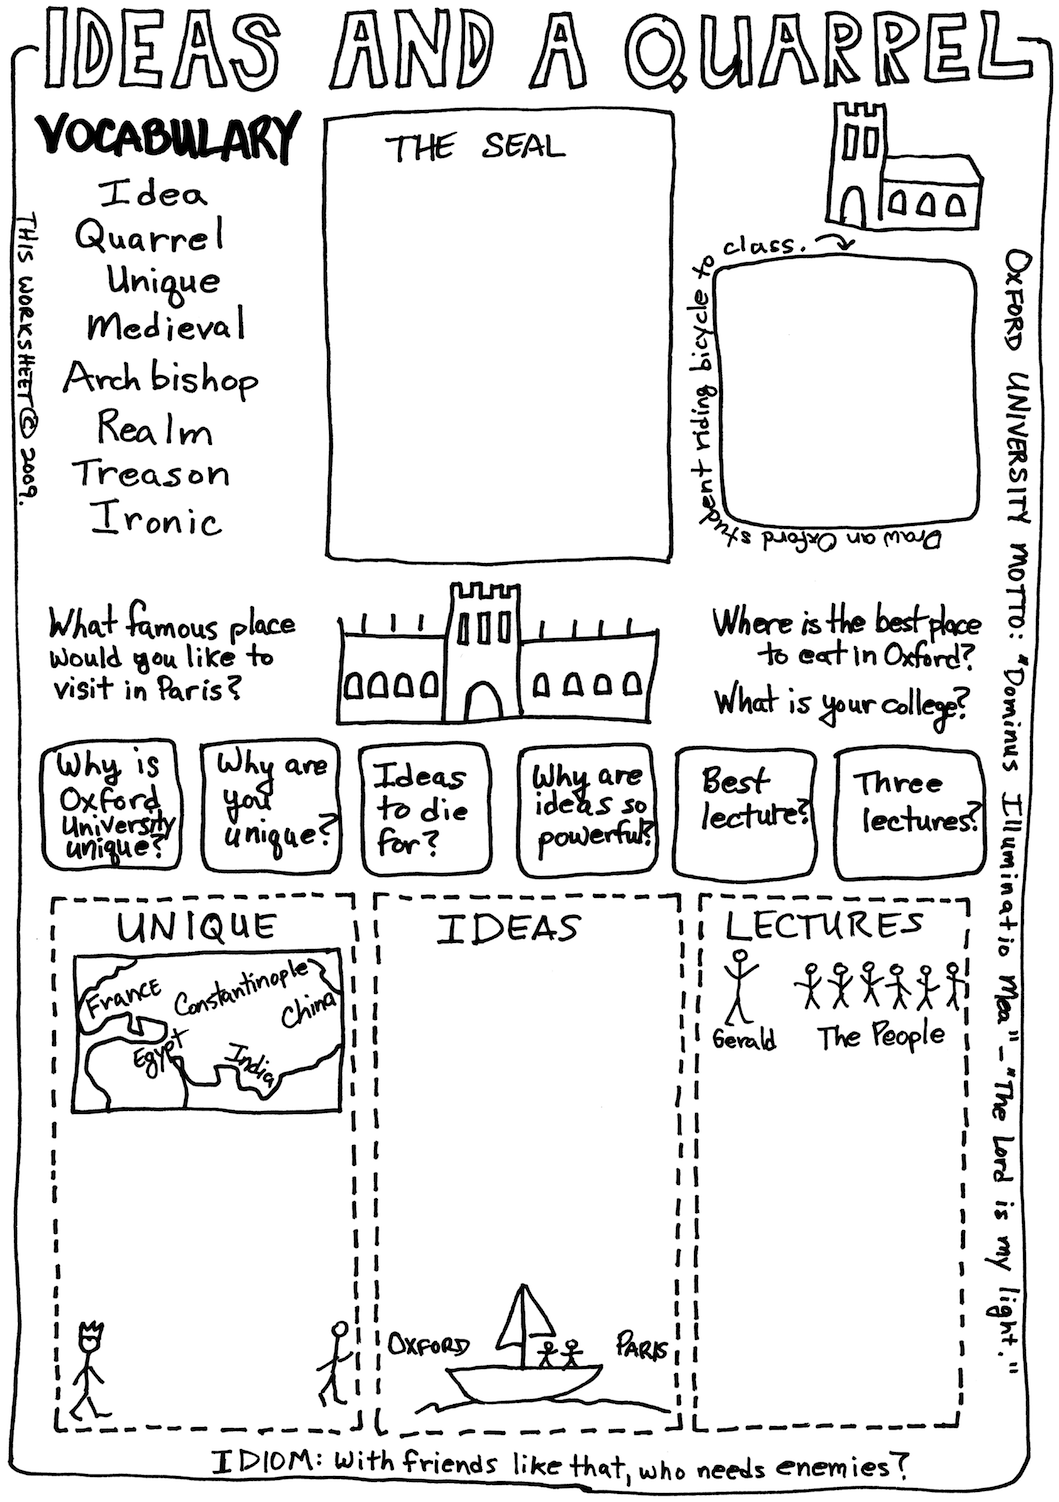 IDEAS AND A QUARREL
VOCABULARY
Idea
Quarrel
Unique
Medieval
Archbishop
Realm
Treason
Ironic
THIS WORKSHEET © 2009.
THE SEAL
Draw an Oxford student riding bicycle to class.
OXFORD UNIVERSITY MOTTO: "Dominus Illuminatio Mea" – "The Lord is my light."
What famous place
would you like to
visit in Paris?
Where is the best place
to eat in Oxford?
What is your college?
Why is
Oxford
University
unique?
Why are
you
unique?
Ideas
to die
for?
Why are
ideas so
powerful?
Best
lecture?
Three
lectures?
UNIQUE
France
Constantinople
China
Egypt
India
IDEAS
OXFORD
PARIS
LECTURES
Gerald
The People
IDIOM: With friends like that, who needs enemies?